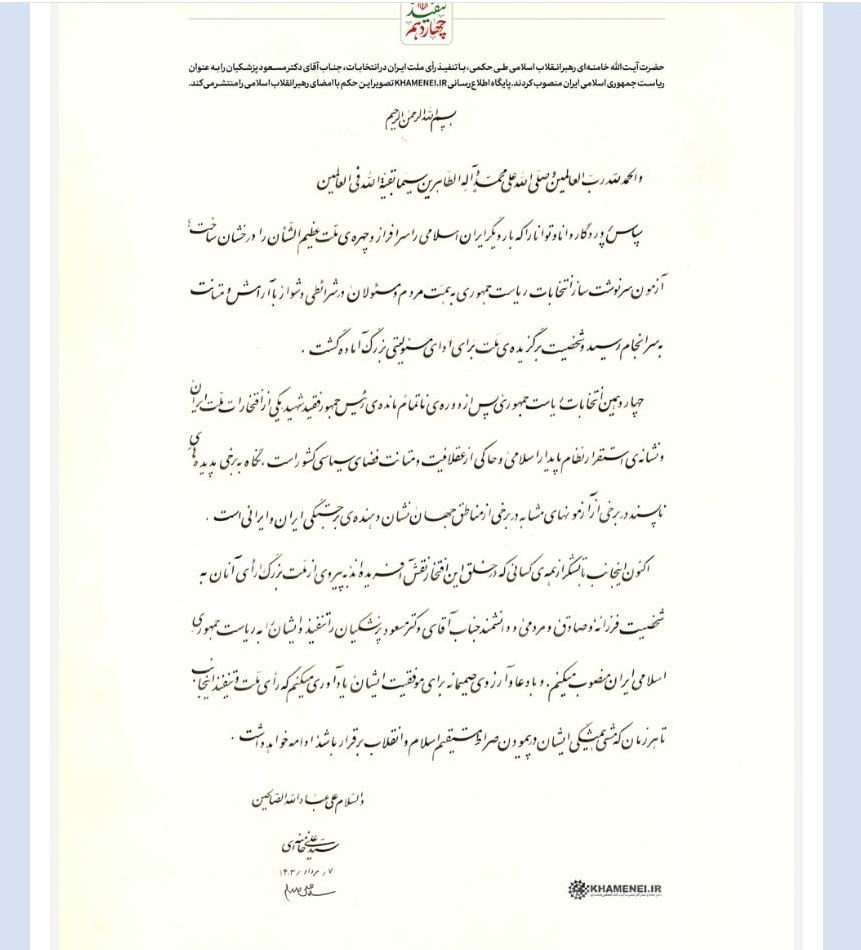 تنفیذ
چهاردهم
حضرت آیت‌الله خامنه‌ای رهبر انقلاب اسلامی طی حکمی، با تنفیذ رأی ملت ایران در انتخابات، جناب آقای دکتر مسعود پزشکیان را به عنوان
ریاست جمهوری اسلامی ایران منصوب کردند. پایگاه اطلاع‌رسانی KHAMENEI.IR تصویر این حکم با امضای رهبر انقلاب اسلامی را منتشر می‌کند.
بسم الله الرحمن الرحیم
والحمدلله رب العالمین و صلی الله علی محمد و آله الطاهرین سیما بقیة الله فی العالمین
سپاس پروردگار دانا و توانا را که بار دیگر ایران اسلامی را سرافراز و چهره‌ی ملت عظیم الشأن را درخشان ساخت؛
آزمون سرنوشت ساز انتخابات ریاست جمهوری به همت مردم و مسئولان در شرائطی دشوار با آرامش و متانت
به سرانجام رسید و شخصیت برگزیده‌ی ملت برای ادای مسئولیتی بزرگ آماده گشت .
چهاردهمین انتخابات ریاست جمهوری پس از دوره‌ی ناتمام مانده‌ی رئیس جمهور فقید شهید یکی از افتخارات ملت ایران
و نشانه‌ی استقرار نظام پایدار اسلامی و حاکی از عقلانیت و متانت فضای سیاسی کشور است . نگاه به برخی پدیده‌های
ناپسند در برخی از آزمونهای مشابه در برخی از مناطق جهان نشان دهنده‌ی برجستگی ایران و ایرانی است .
اکنون اینجانب با تشکر از همه‌ی کسانی که در خلق این افتخار نقش آفریده‌اند به پیروی از ملت بزرگ رأی آنان به
شخصیت فرزانه و صادق و مردمی و دانشمند جناب آقای دکتر مسعود پزشکیان را تنفیذ و ایشان را به ریاست جمهوری
اسلامی ایران منصوب میکنم . و با دعا و آرزوی صمیمانه برای موفقیت ایشان یادآوری میکنم که رأی ملت و تنفیذ اینجانب
تا هر زمان که مشی همیشگی ایشان در پیمودن صراط مستقیم اسلام و انقلاب برقرار باشد ادامه خواهد داشت .
والسلام علی عباد الله الصالحین
سید علی خامنه‌ای
۷ / مرداد / ۱۴۰۳
KHAMENEI.IR